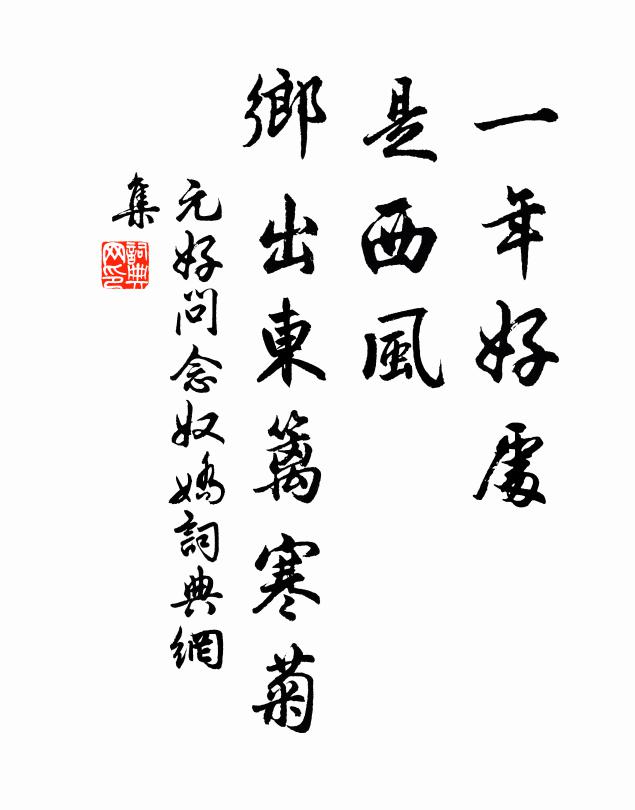 一年好處
是西風
鄉出東籬寒菊
元好問念奴嬌詞典網
集
詞典
网印